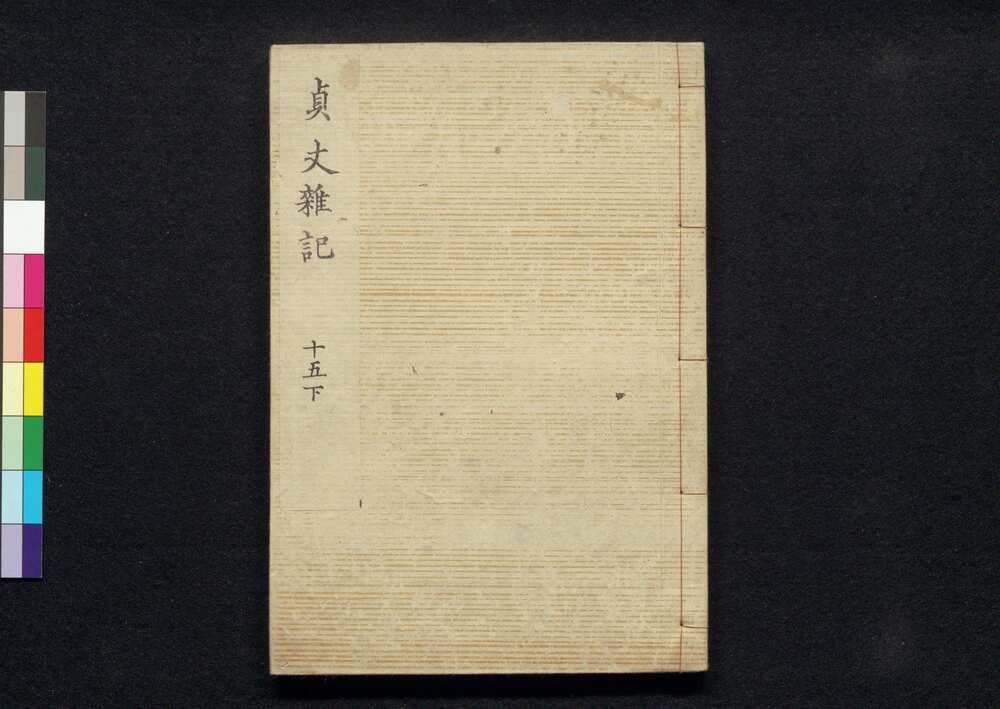 貞丈雜記
十五下